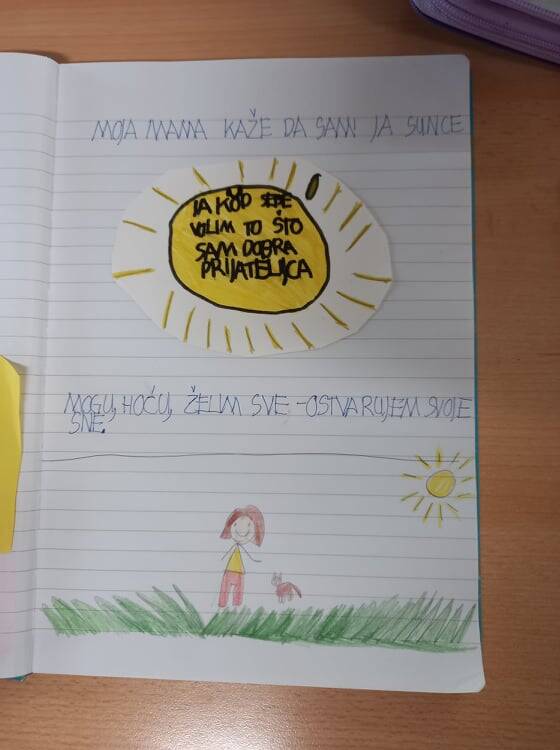 MOJA MAMA KAŽE DA SAM JA SUNCE
JA KOD SEBE
VOLIM TO ŠTO
SAM DOBRA
PRIJATELJICA
MOGU, HOĆU, ŽELIM SVE - OSTVARUJEM SVOJE
SNE.